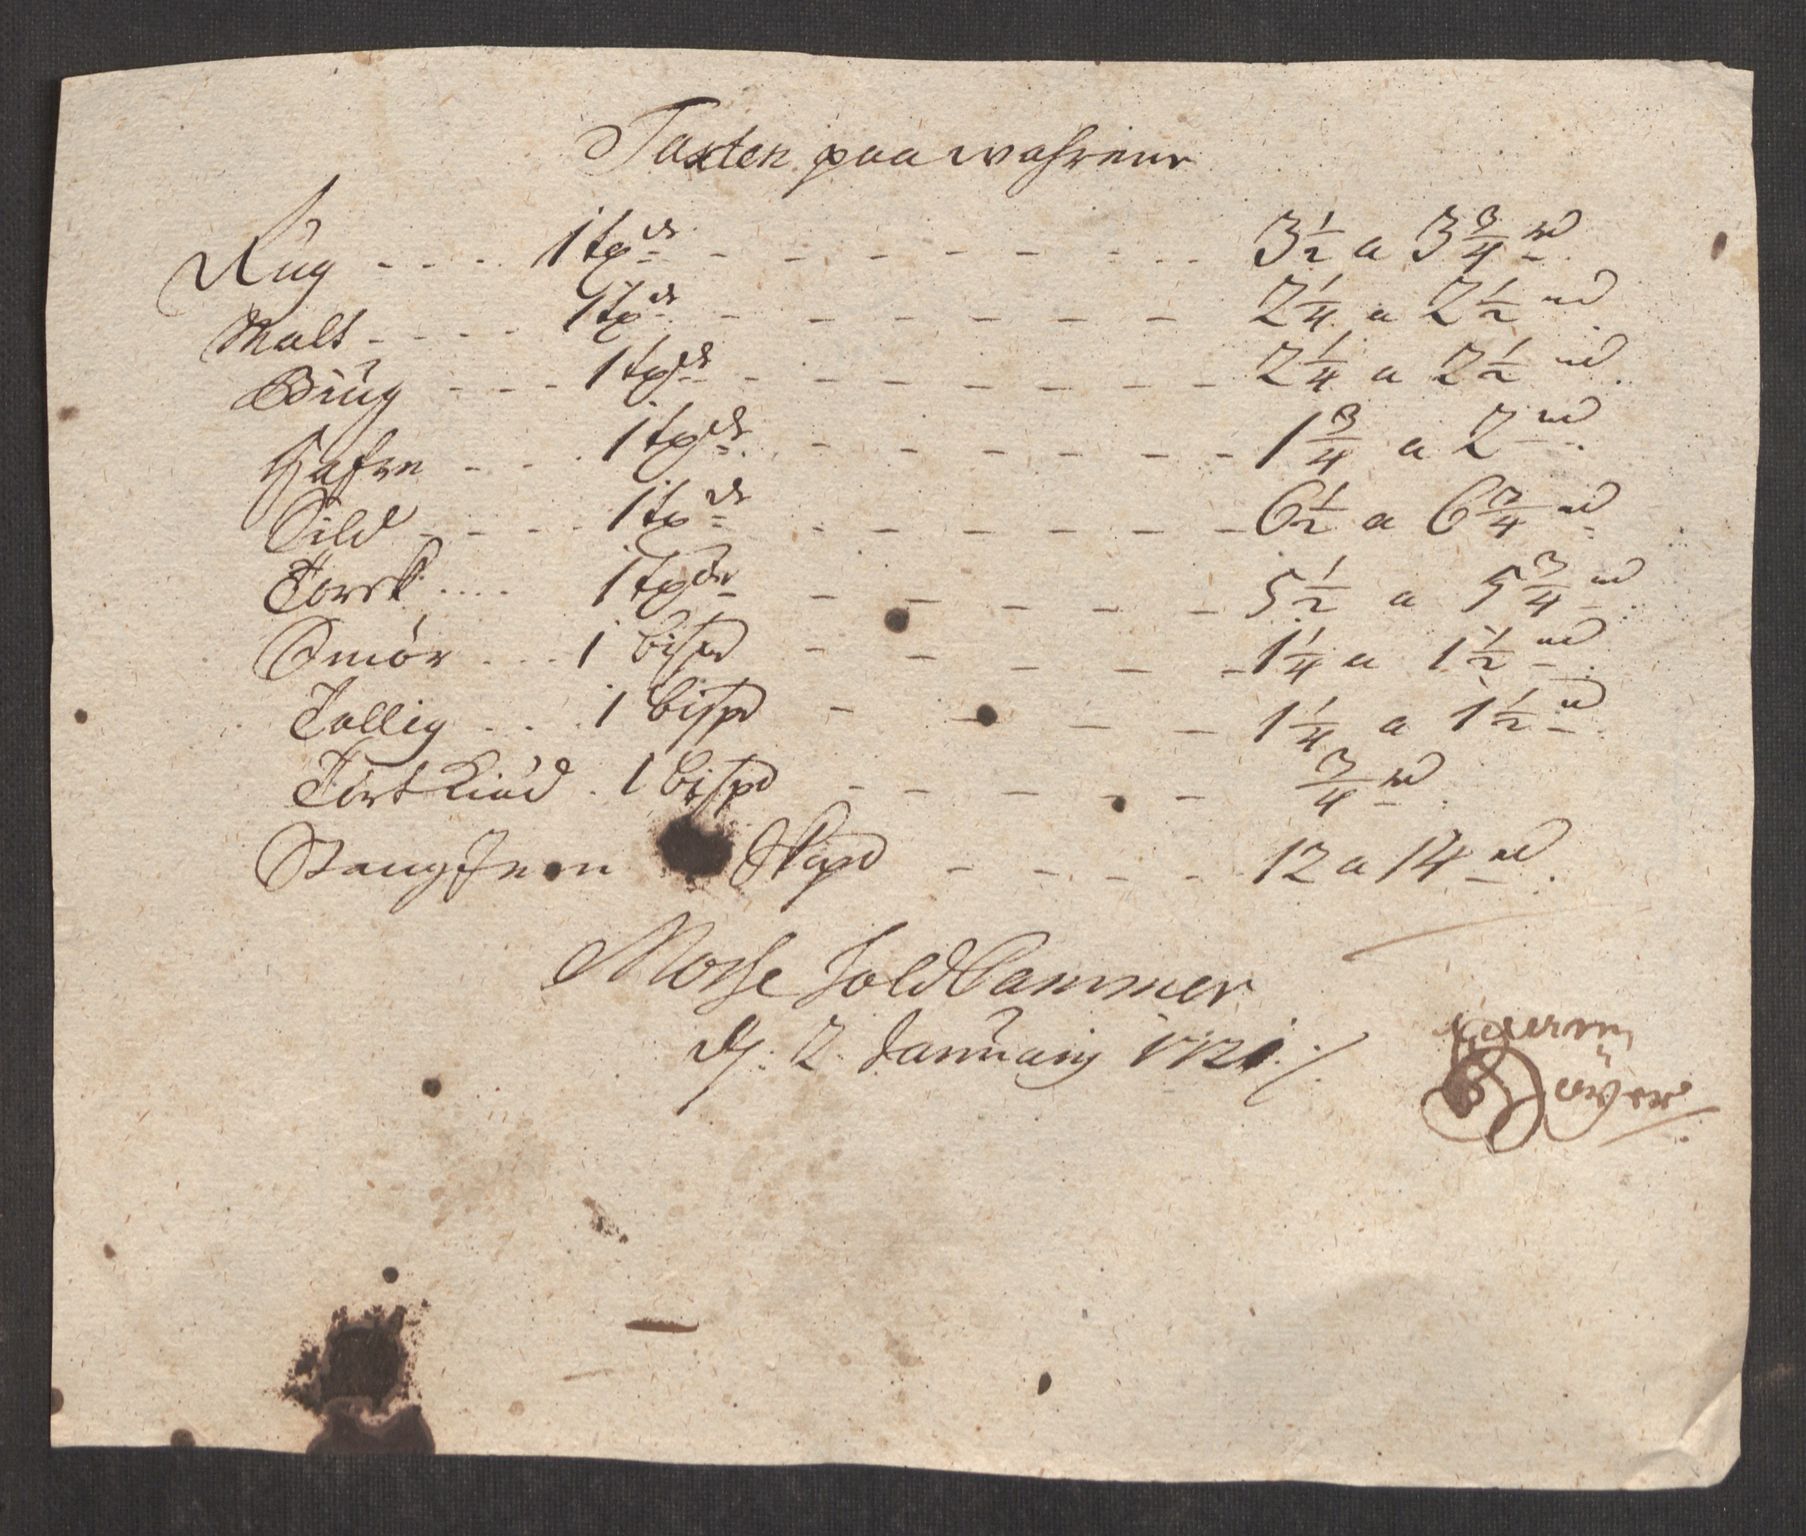 Taxten paa wahrene
Rug - - - . 1 tpde - - - - - - - - 3 1/2 a 3 3/4 rd.
Malt - - - - 1 tpde - - - - - - - 2 1/4 a 2 1/2 rd
Biug - - - 1 tpde - - - - - - - 2 1/4 a 2 1/2 rd.
Hafre - - - 1 tpde - - - - - - 1 3/4 a 2 rd.
Sild - - - - 1 tpde - - - - - - 6 1/2 a 6 3/4 rd
Torsk .... 1 tpde - - - - - 5 1/2 a 5 3/4 rd.
Smör . . . 1 bispd - - - - - 1 1/4 a 1 1/2 rd.
Tallig . . . 1 bispd - - - - 1 1/4 a 1 1/2 rd.
Tört Kiöd . 1 bispd - - - - - 3/4 rd.
Stang Jern Skpd - - - - 12 a 14 rd.
Mosse Told Cammer
d. 2 January 1721 ./.